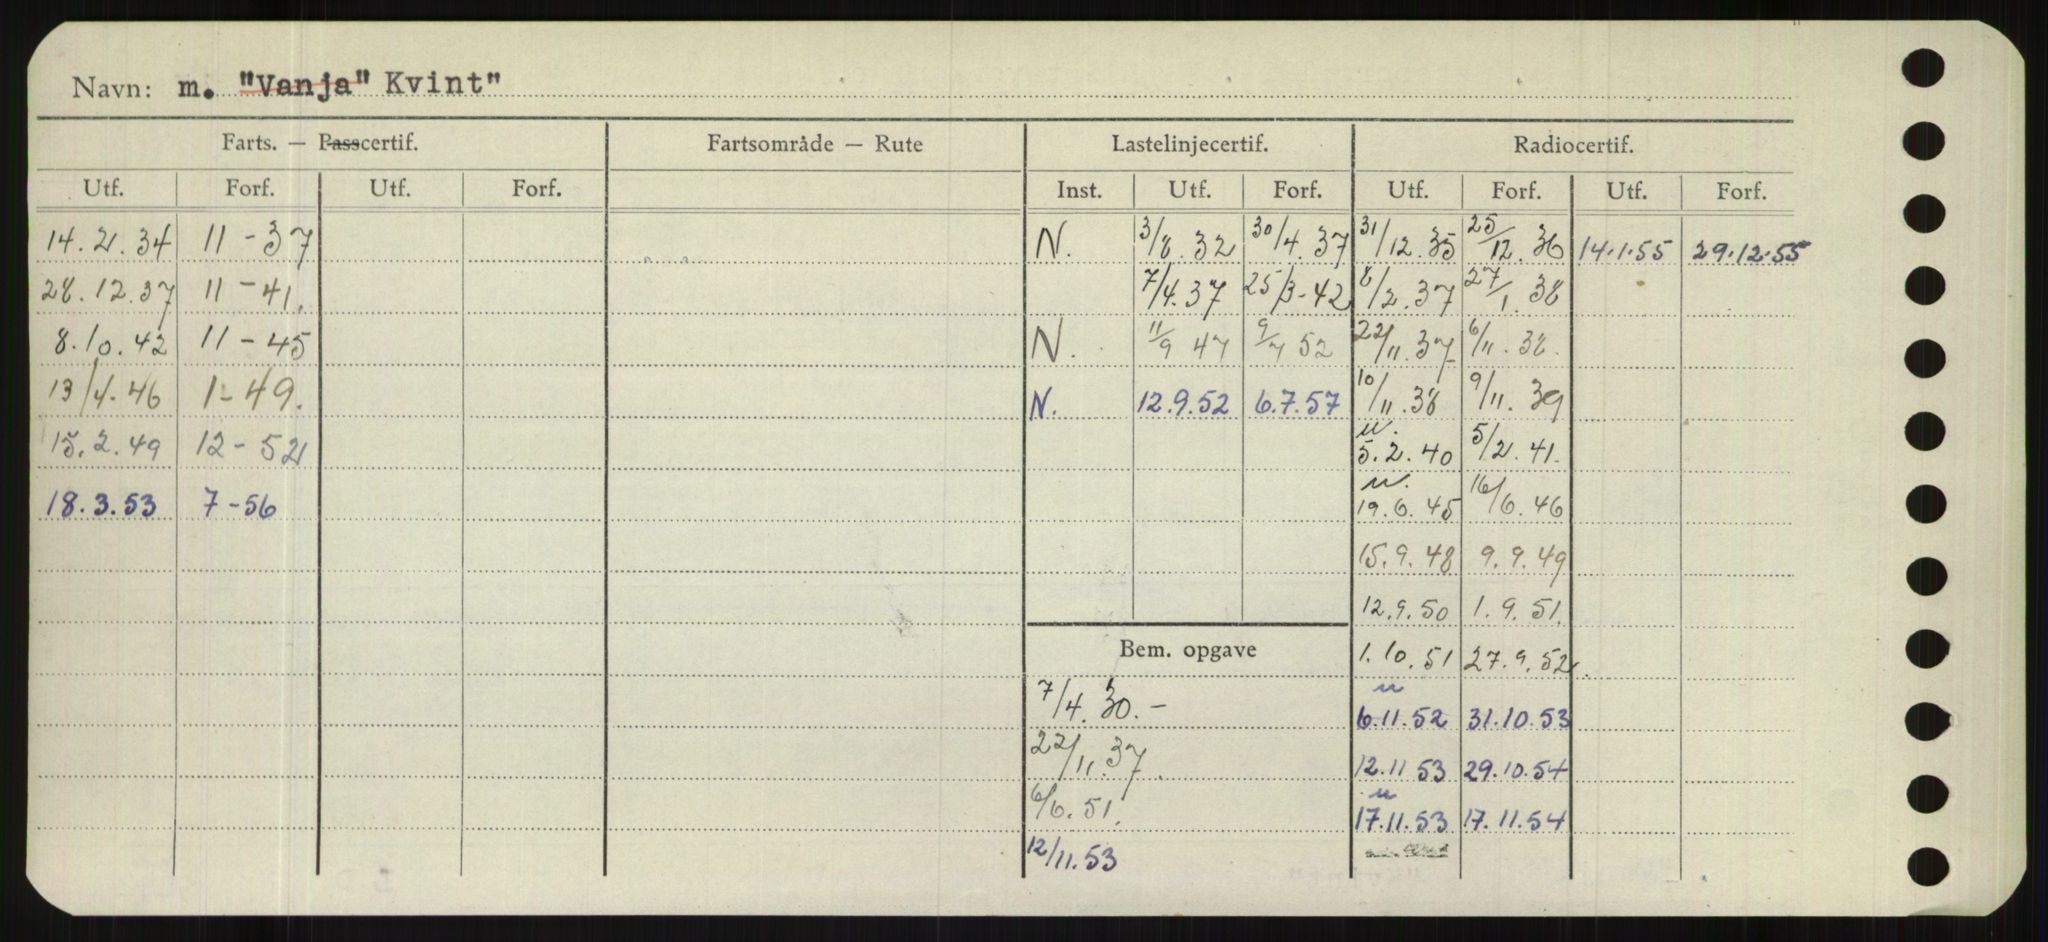 Navn: m. "Vanja" Kvint"
Farts. — Passcertif. Fartsområde — Rute Lastelinjecertif. Radiocertif.
Utf. Forf. Utf. Forf. Inst. Utf. Forf. Utf. Forf. Utf. Forf.
14.2.34 11-37 N. 3/8.32 30/4.37 31/12.35 25/12.36 14.1.55 29.12.55
28.12.37 11-41. 7/4.37 25/3-42 8/2.37 27/1.38
8.10.42 11-45 N. 11/9 47 9/7 52 22/11.37 6/11.38.
13/4.46 1-49. N. 12.9.52 6.7.57 10/11.38 9/11.39
15.2.49 12-52 u. 5.2.40 5/2.41.
18.3.53 7-56 u. 19.6.45 16/6.46
15.9.48 9.9.49
12.9.50 1.9.51.
Bem. opgave 1.10.51 27.9.52.
7/4.30.- u 6.11.52 31.10.53
22/11.37. 12.11 53 29.10.54
6/6.51. u 17.11.53 17.11.54
12/11.53